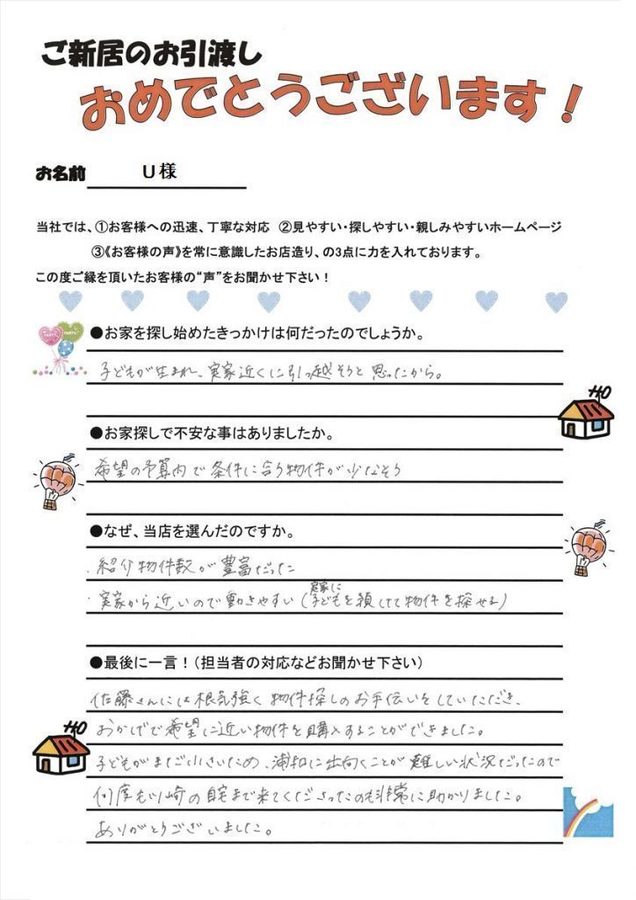 ご新居のお引渡し
おめでとうございます！
お名前 U様
当社では、①お客様への迅速、丁寧な対応 ②見やすい・探しやすい・親しみやすいホームページ
③《お客様の声》を常に意識したお店造り、の3点に力を入れております。
この度ご縁を頂いたお客様の“声”をお聞かせ下さい！
●お家を探し始めたきっかけは何だったのでしょうか。
子どもが生まれ、実家近くに引っ越そうと思ったから。
●お家探しで不安な事はありましたか。
希望の予算内で条件に合う物件が少なそう
●なぜ、当店を選んだのですか。
・紹介物件数が豊富だった
・実家から近いので動きやすい（実家に子どもを預けて物件を探せる）
●最後に一言！（担当者の対応などお聞かせ下さい）
佐藤さんには根気強く物件探しのお手伝いをしていただき、
おかげで希望に近い物件を購入することができました。
子どもがまだ小さいため、浦和に出向くことが難しい状況だったので
何度も川崎の自宅まで来てくださったのも非常に助かりました。
ありがとうございました。